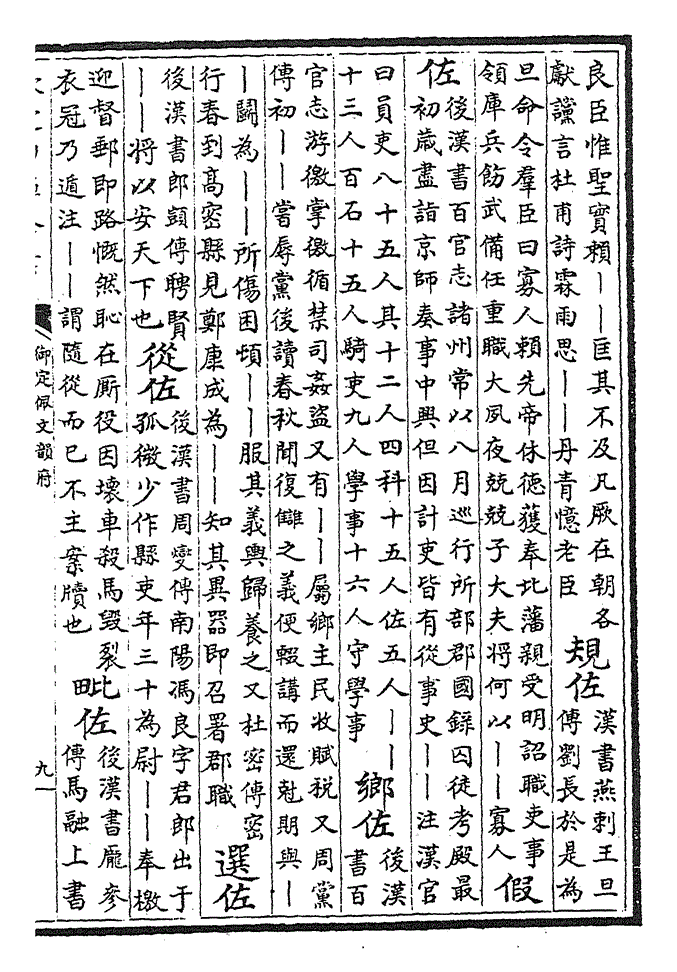 良臣惟聖實賴——匡其不及凡厥在朝各
獻讜言杜甫詩霖雨思——丹青憶老臣
規佐
漢書燕剌王旦
傳劉長於是為
旦命令羣臣曰寡人賴先帝休德獲奉北藩親受明詔職吏事
領庫兵飭武備任重職大夙夜兢兢子大夫將何以——寡人
假
佐
後漢書百官志諸州常以八月巡行所部郡國錄囚徒考殿最
初歲盡詣京師奏事中興但因計吏皆有從事史——注漢官
曰員吏八十五人其十二人四科十五人佐五人——
十三人百石十五人騎吏九人學事十六人守學事
鄉佐
後漢
書百
官志游徼掌徼循禁司姦盜又有——屬鄉主民收賦稅又周黨
傳初——嘗辱黨後讀春秋聞復讎之義便輟講而還剋期與—
—鬬為——所傷困頓——服其義輿歸養之又杜密傳密
行春到高密縣見鄭康成為——知其異器即召署郡職
選佐
後漢書郎顗傳聘賢
——將以安天下也
從佐
後漢書周燮傳南陽馮良字君郎出于
孤微少作縣吏年三十為尉——奉檄
迎督郵即路慨然恥在厮役因壞車殺馬毀裂
衣冠乃遁注——謂隨從而已不主案牘也
毗佐
後漢書龐參
傳馬融上書
御定佩文韻府
九